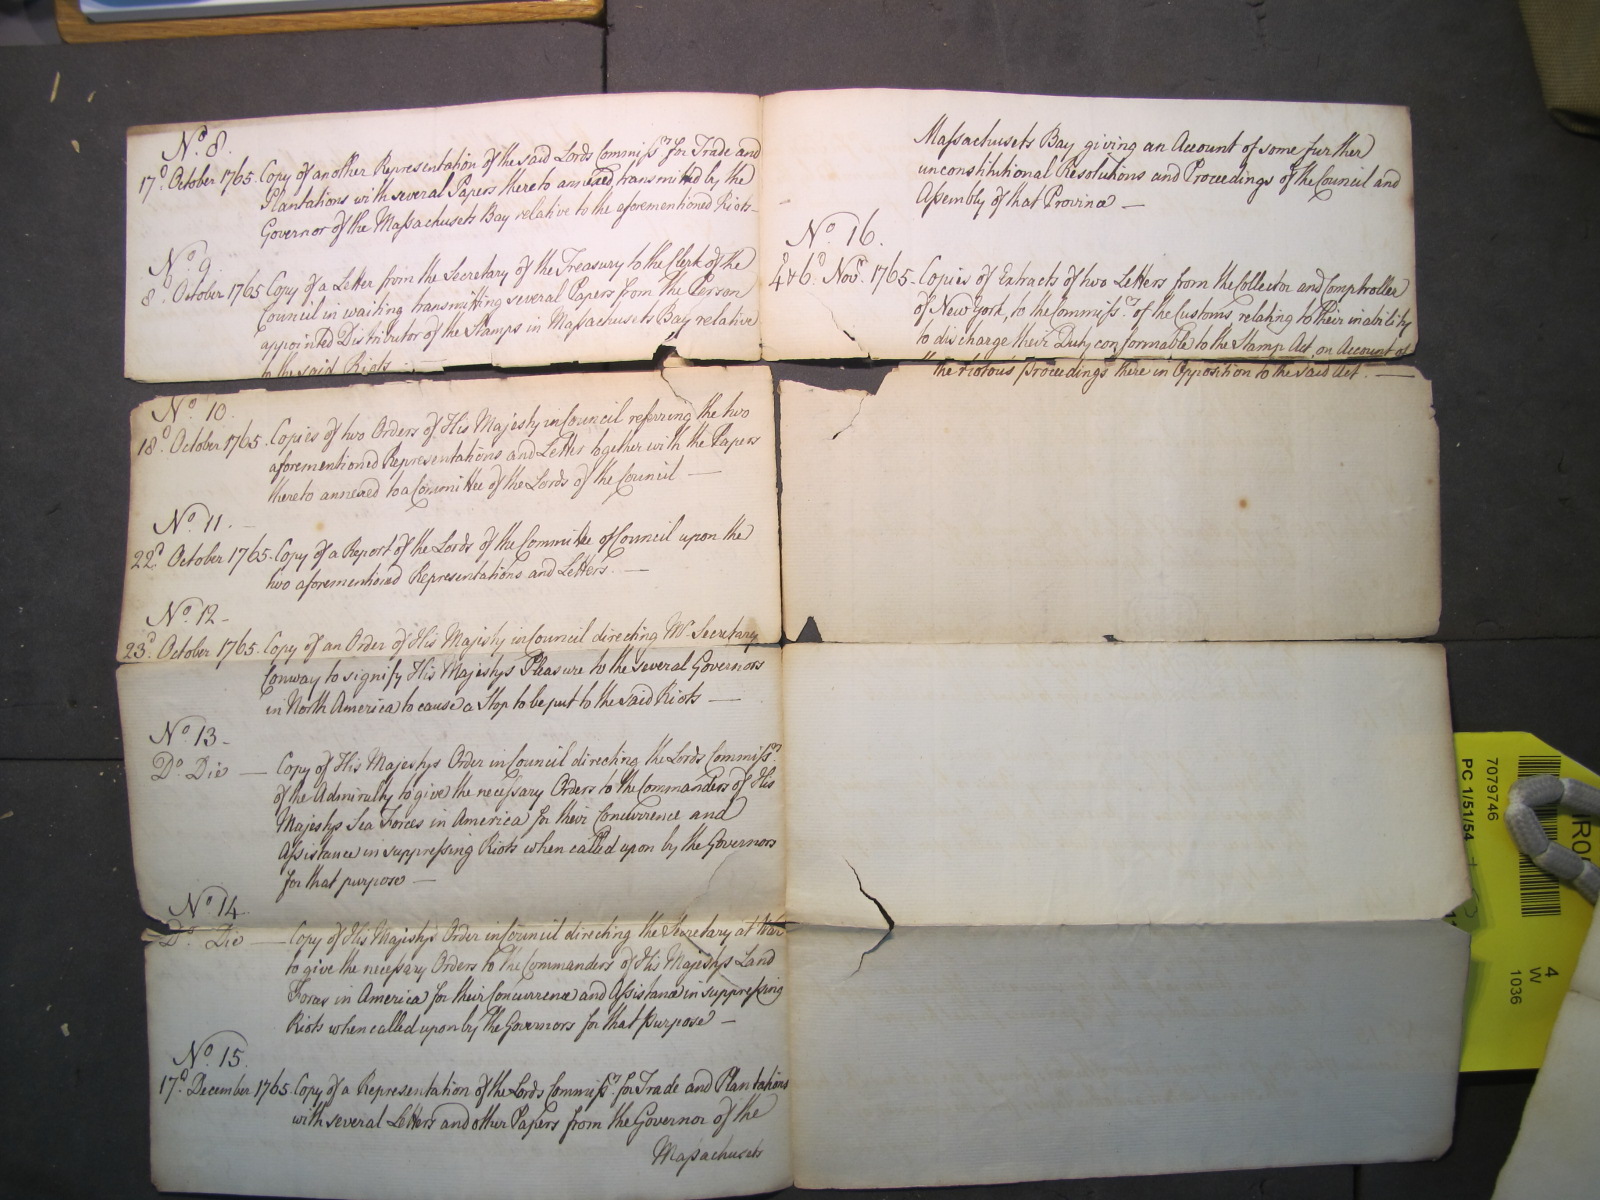 No. 8.
17o. October 1765. Copy of another Representation of the said Lords Commissrs. for Trade and
Plantations with several Papers thereto annexed, transmitted by the
Governor of the Massachusets Bay relative to the aforementioned Riots—
No. 9.
8o. October 1765 Copy of a Letter from the Secretary of the Treasury to the Clerk of the
Council in waiting transmitting several Papers from the Person
appointed Distributor of the Stamps in Massachusets Bay relative
to the said Riots —
No. 10.
18o. October 1765. Copies of two Orders of His Majesty in Council referring the two
aforementioned Representations and Letter together with the Papers
thereto annexed to a Committee of the Lords of the Council —
No. 11. -
22o. October 1765. Copy of a Report of the Lords of the Committee of Council upon the
two aforementioned Representations and Letters. —
No. 12 -
23o. October 1765. Copy of an Order of His Majesty in Council directing Mr. Secretary
Conway to signify His Majestys Pleasure to the several Governors
in North America to cause a Stop to be put to the said Riots —
No. 13 -
Do. Die — Copy of His Majestys Order in Council directing the Lords Commissrs.
of the Admiralty to give the necessary Orders to the Commanders of His
Majestys Sea Forces in America for their Concurrence and
Assistance in suppressing Riots when called upon by the Governors
for that purpose —
No. 14
Do. Die — Copy of His Majestys Order in Council directing the Secretary at War
to give the necessary Orders to the Commanders of His Majestys Land
Forces in America for their Concurrence and Assistance in suppressing
Riots when called upon by the Governors for that Purpose —
No. 15
17o. December 1765. Copy of a Representation of the Lords Commissrs. for Trade and Plantations
with several Letters and other Papers from the Governor of the
Massachusets
Massachusets Bay giving an Account of some further
unconstitutional Resolutions and Proceedings of the Council and
Assembly of that Province —
No. 16.
4o & 6o. Novr. 1765. Copies of Extracts of two Letters from the Collector and Comptroller
of New York, to the Commissrs. of the Customs relating to their inability
to discharge their Duty conformable to the Stamp Act, on Account of
the riotous proceedings there in Opposition to the said Act. —
7079746
PC 1/51/54
4
W
1036